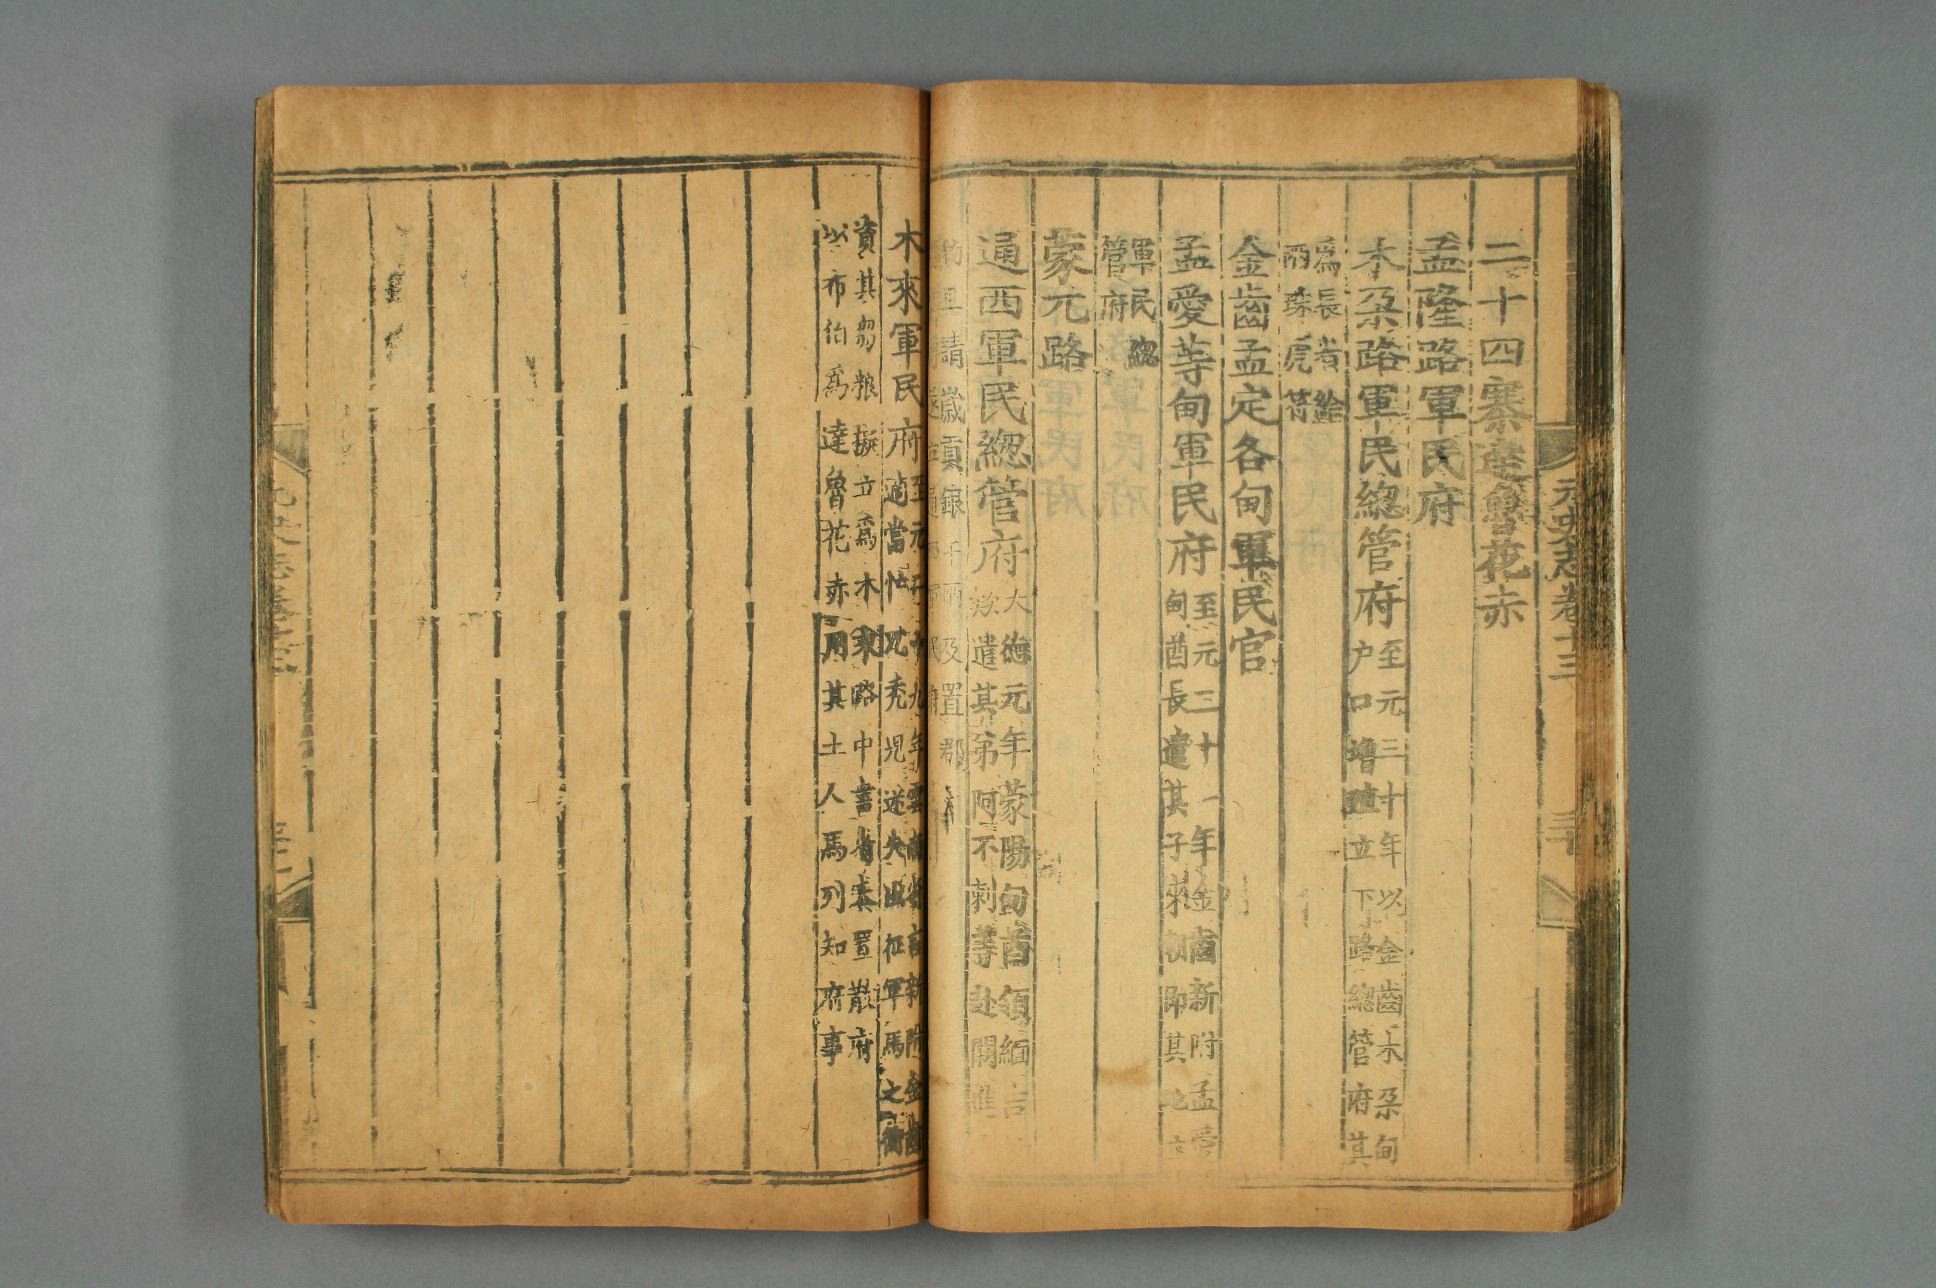 元史志卷十三
二十四寨達魯花赤
孟隆路軍民府
木朶路軍民總管府至元三十年以金齒木朶甸
户口增殖立下路總管府其
爲長者給
兩珠虎符
金齒孟定各甸軍民官
孟愛等甸軍民府至元三十一年金齒新附孟愛
甸酋長遣其子來朝即其地立
軍民總
管府
蒙元路
通西軍民總管府大德元年蒙陽甸酋領緬吉
欵遣其弟阿不剌等赴闕進
請歲貢銀千两及置郡
木來軍民府至元二十九年雲南省言新附金齒
適當忙兀禿児迷失出征軍馬之衝
資其芻粮擬立爲木來路中書省奏置散府
以布伯爲達魯花赤用其土人馬列知府事